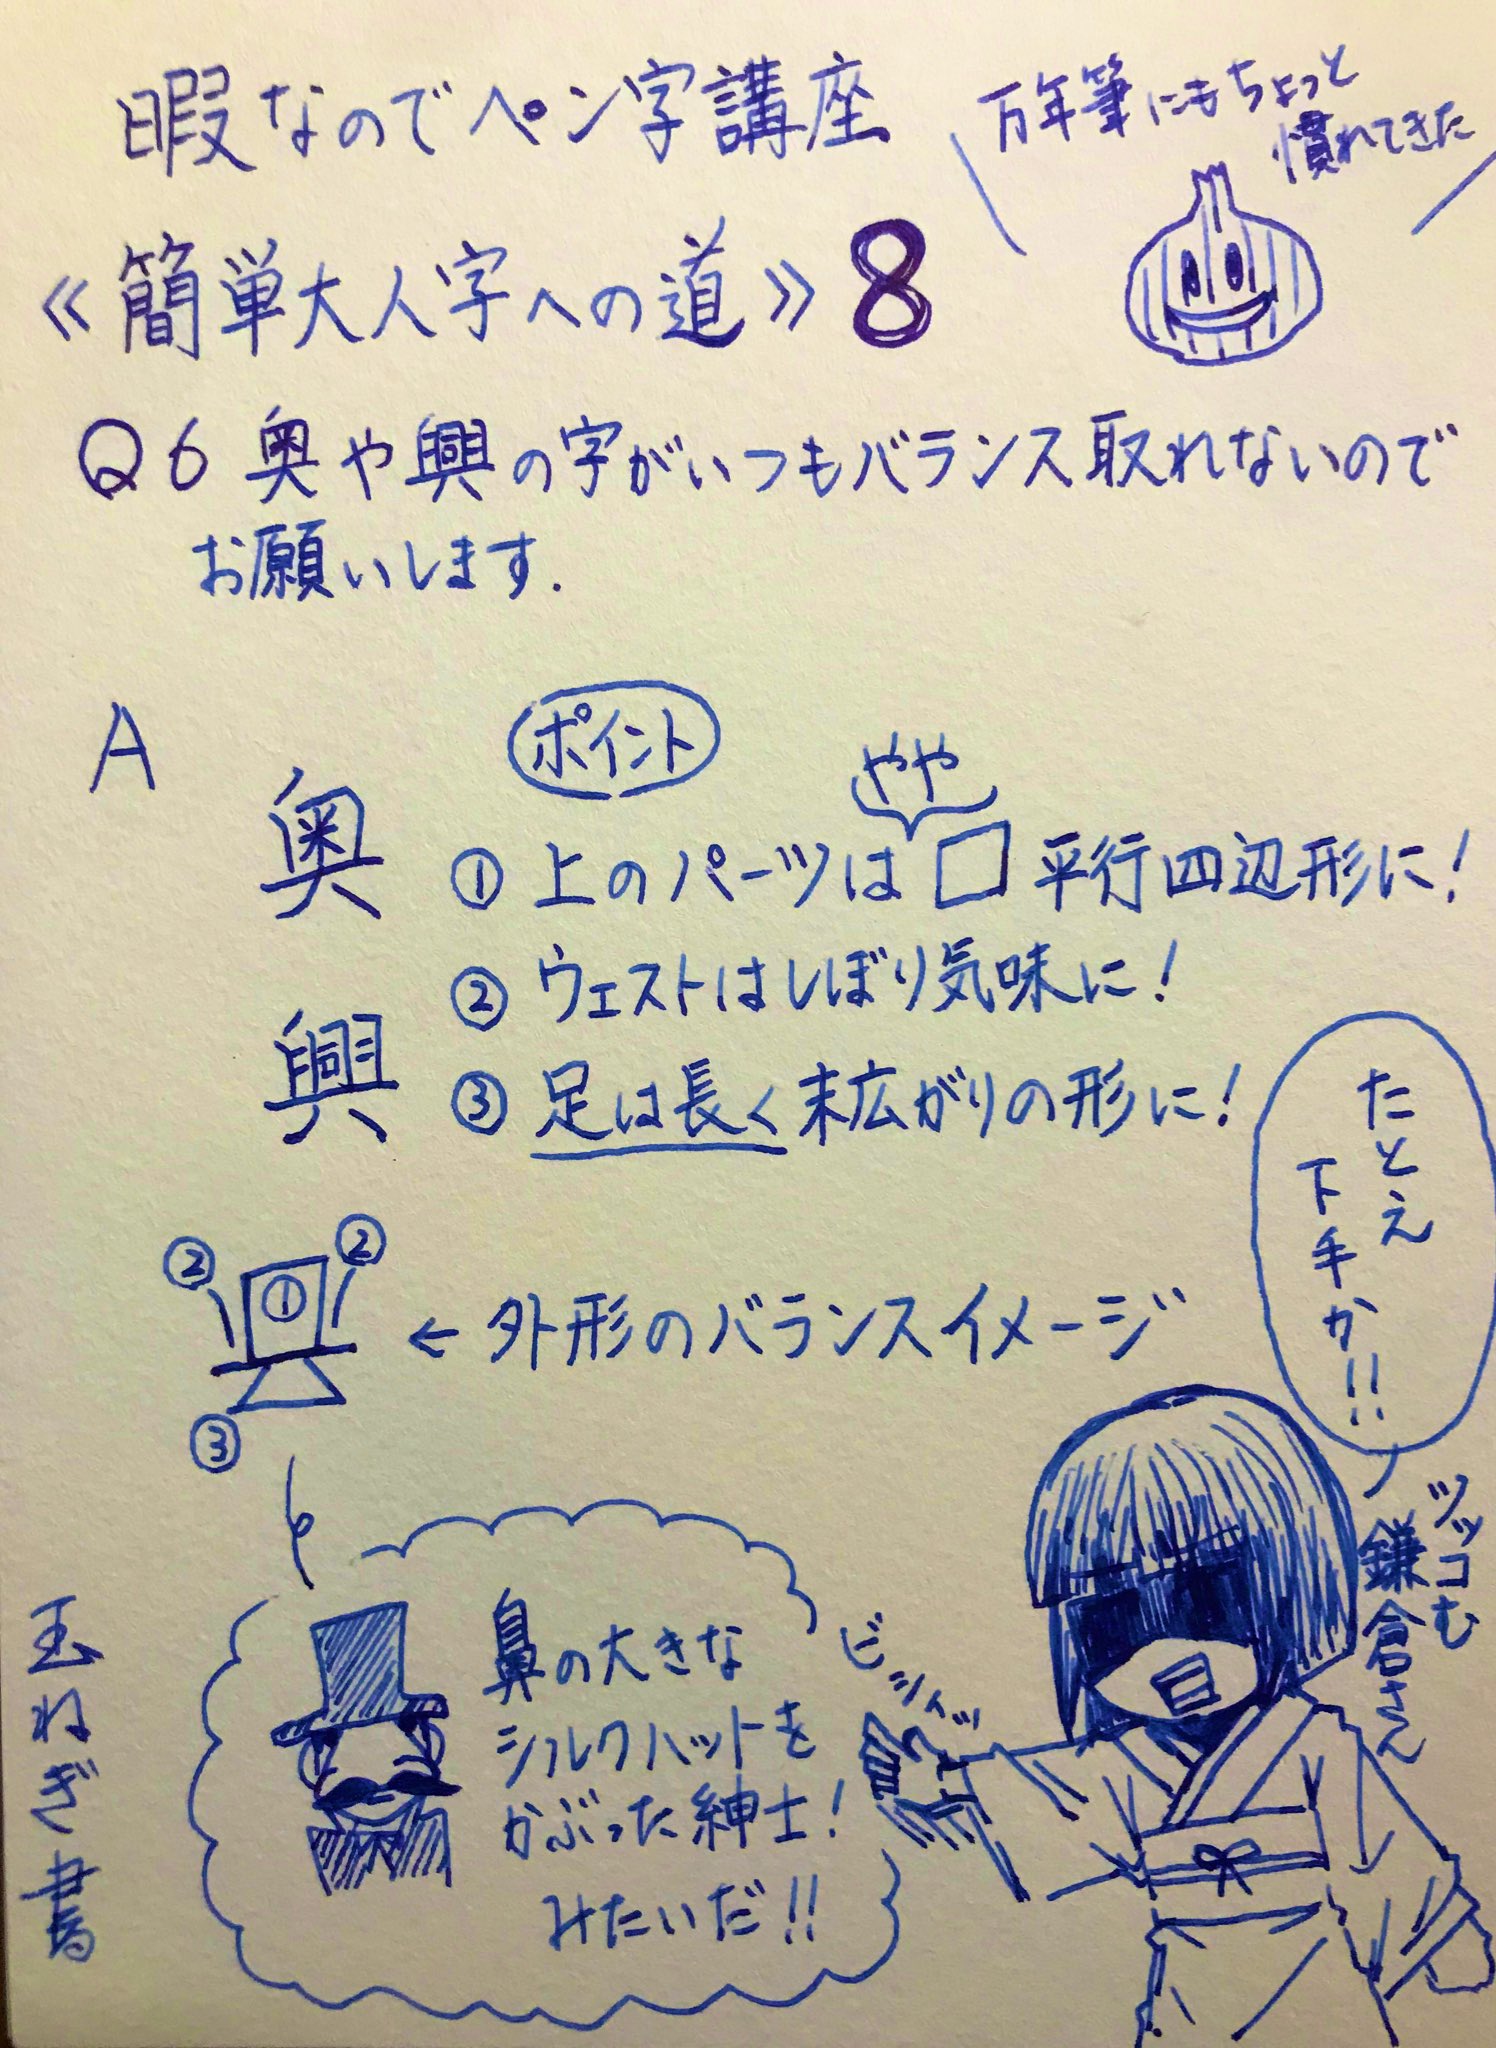 暇なのでペン字講座
万年筆にもちょっと
慣れてきた
《簡単大人字への道》8
Q6 奥や興の字がいつもバランス取れないので
お願いします.
A
ポイント
奥
やや
①上のパーツは□平行四辺形に!
②ウェストはしぼり気味に!
興
③足は長く末広がりの形に!
たとえ
下手か!!
② ②
①
③
←外形のバランスイメージ
ツッコむ
鎌倉さん
鼻の大きな
シルクハットを
かぶった紳士!
みたいだ!!
ビシィッ
玉ねぎ書